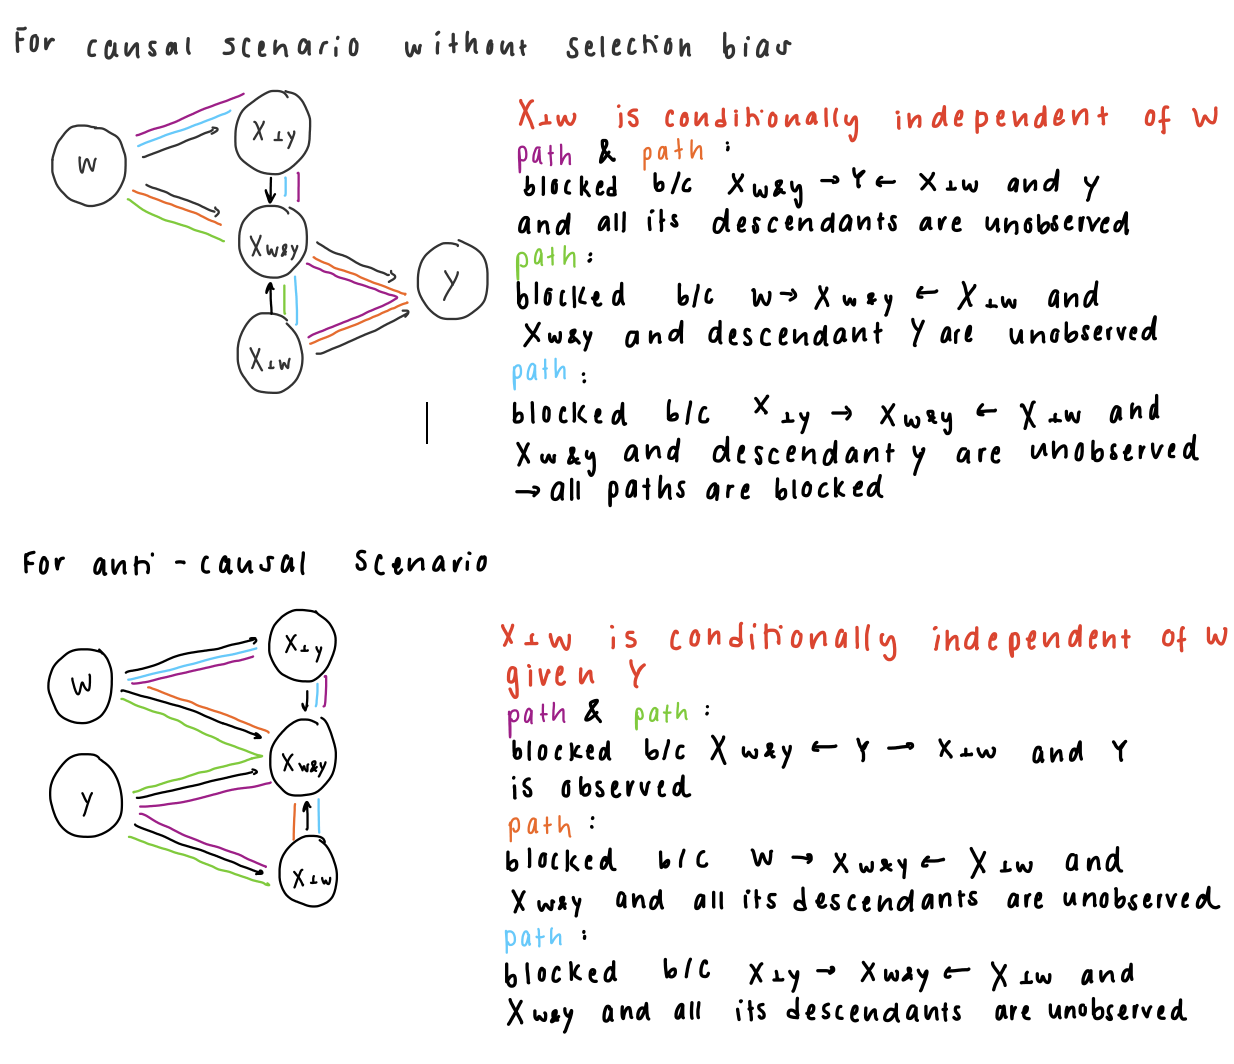 For causal scenario without selection bias
W
X⊥y
Xw&y
y
X⊥w
X⊥w is conditionally independent of W
path & path :
blocked b/c Xw&y → Y ← X⊥w and y
and all its descendants are unobserved
path :
blocked b/c w → Xw&y ← X⊥w and
Xw&y and descendant Y are unobserved
path :
blocked b/c X⊥y → Xw&y ← X⊥w and
Xw&y and descendant y are unobserved
→ all paths are blocked
For anti-causal scenario
W
X⊥y
Xw&y
y
X⊥w
X⊥w is conditionally independent of W
given Y
path & path :
blocked b/c Xw&y ← Y → X⊥w and Y
is observed
path :
blocked b/c W → Xw&y ← X⊥w and
Xw&y and all its descendants are unobserved
path :
blocked b/c X⊥y → Xw&y ← X⊥w and
Xw&y and all its descendants are unobserved